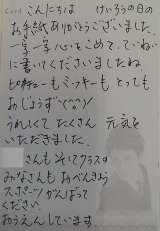 Card こんにちは けいろうの日の
お手紙ありがとうございました。
一字一字心をこめて、ていねい
に書いてくださいましたね
ピカチューもミッキーも とっても
おじょうず(^o^)/
うれしくて たくさん 元気を
いただきました。
さんも そしてクラスの
みなさんも おべんきょう
スポーツ がんばって
ください
おうえんしています。